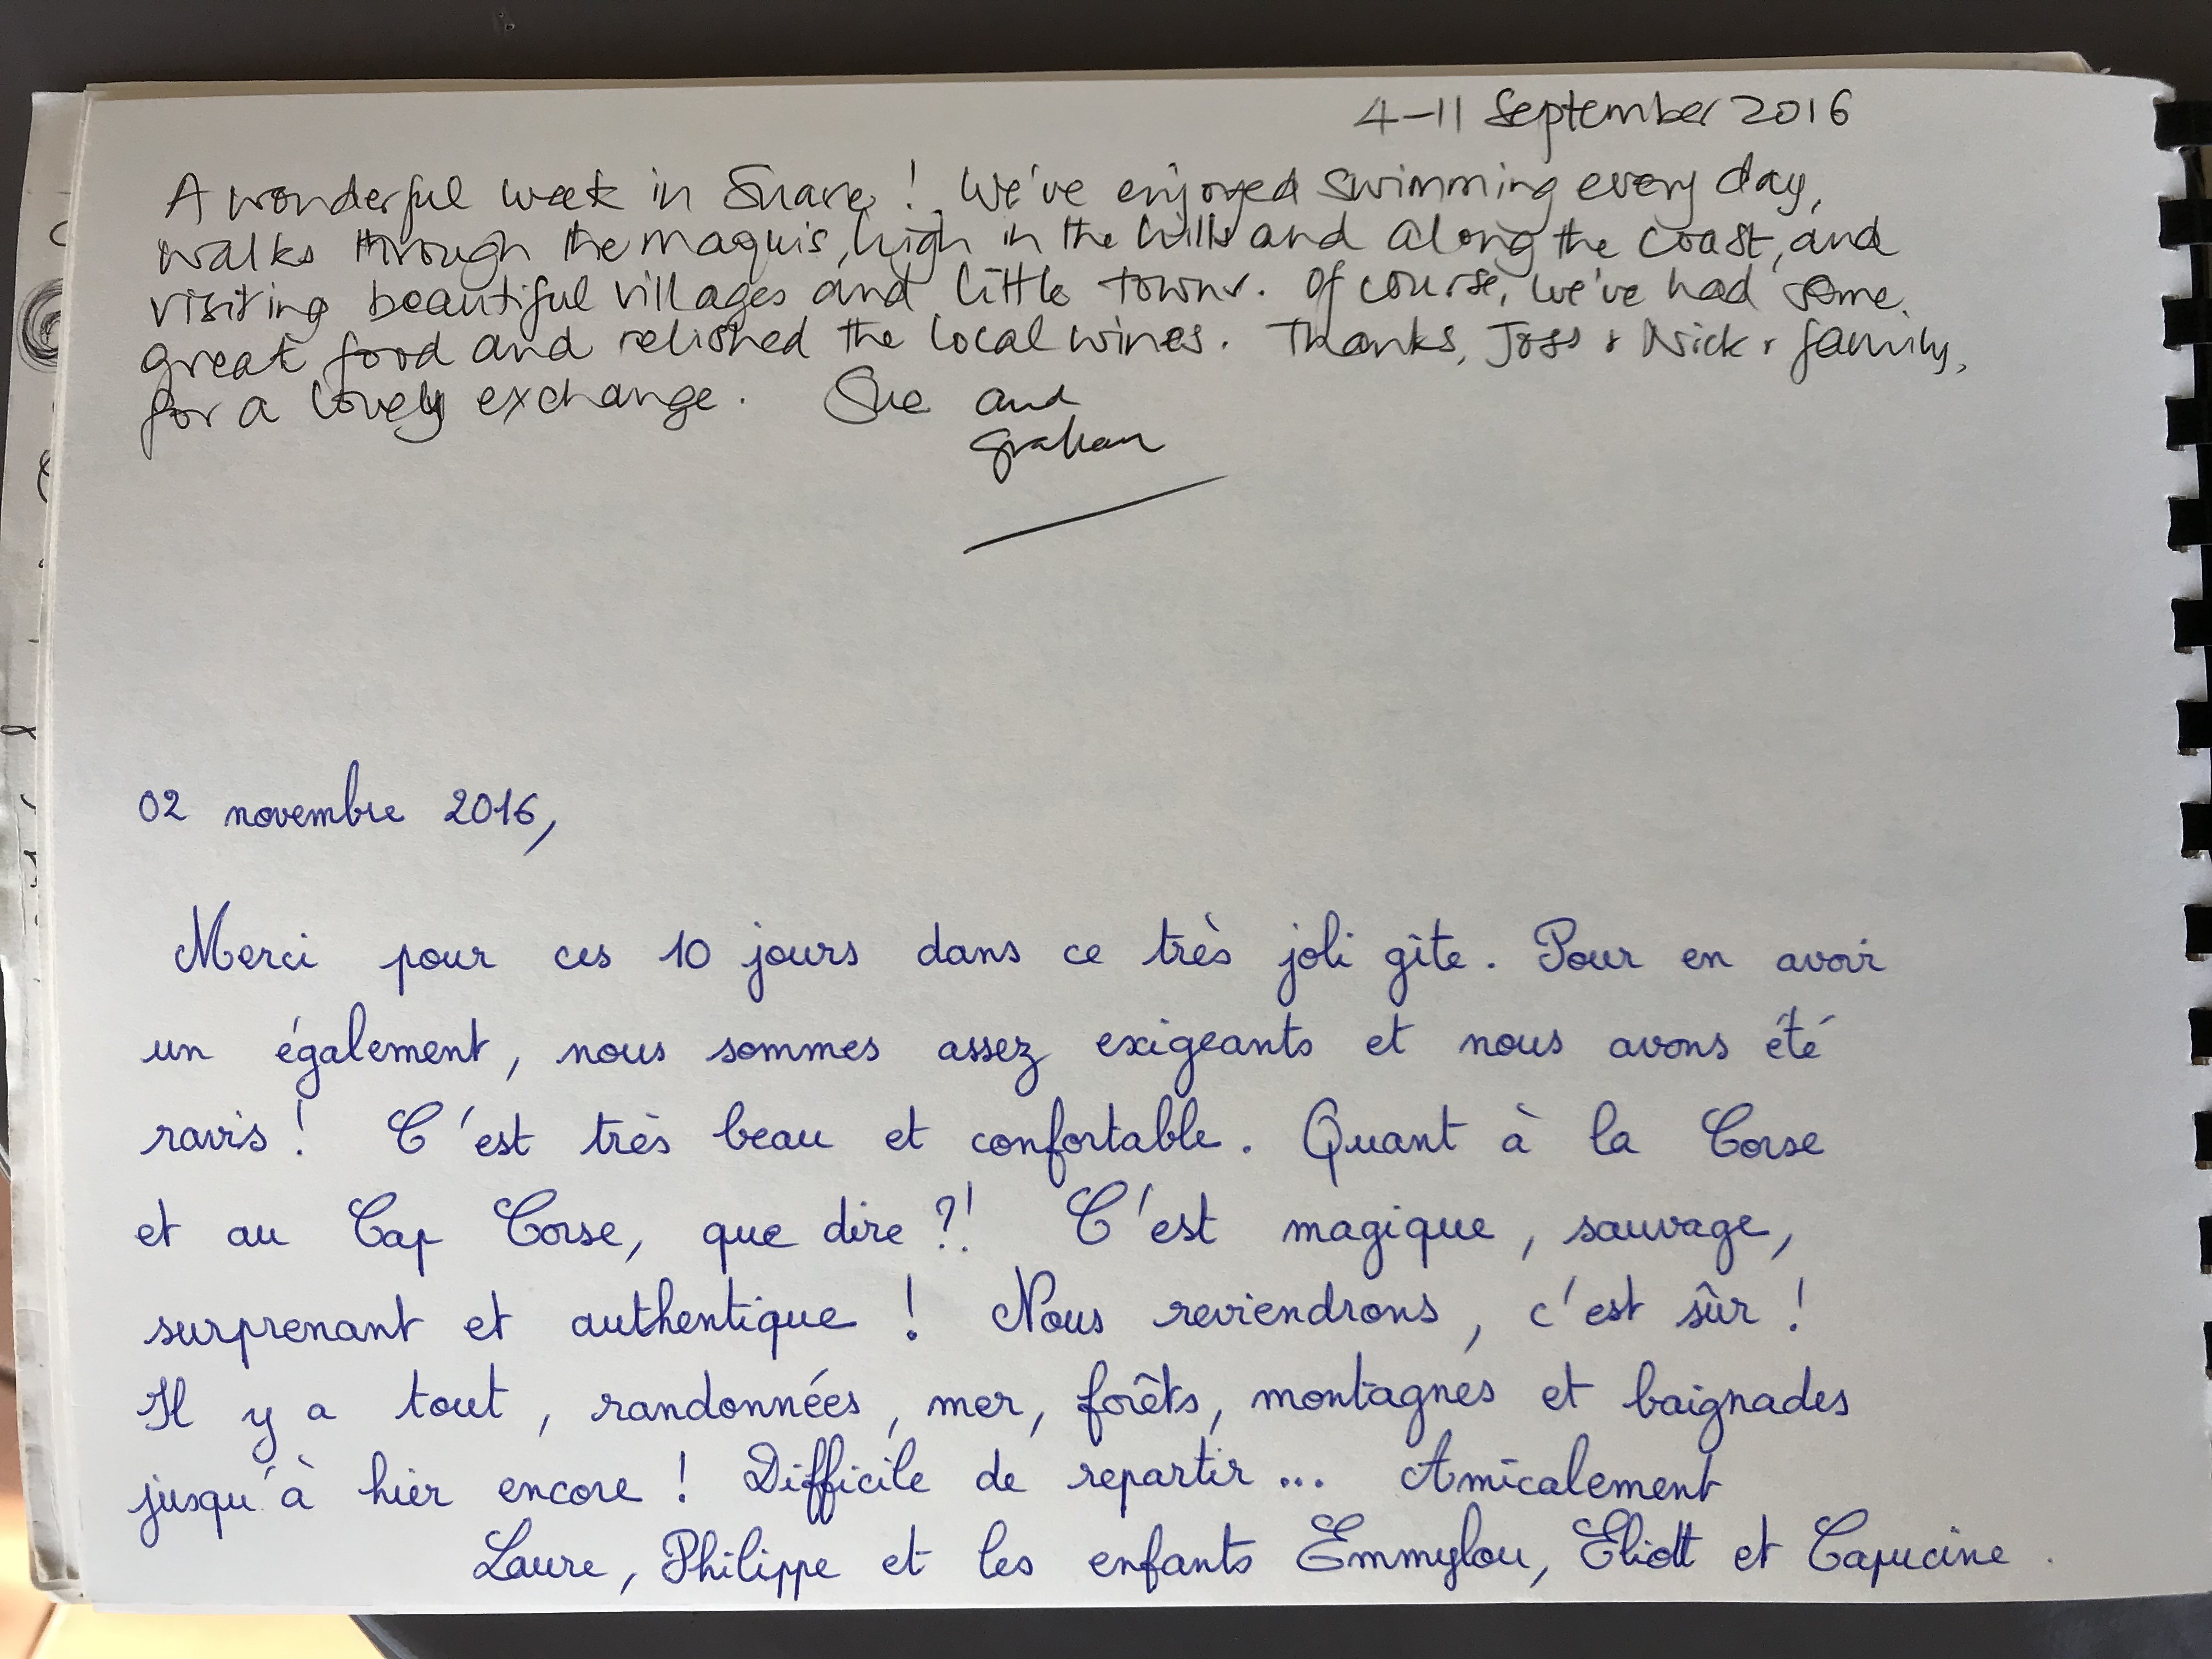 4-11 September 2016
A wonderful week in Suare! We've enjoyed swimming every day,
walks through the maquis, high in the hills and along the coast, and
visiting beautiful villages and little towns. Of course, we've had some
great food and relished the local wines. Thanks, Joss & Nick & family,
for a lovely exchange. Sue and
Graham
02 novembre 2016,
Merci pour ces 10 jours dans ce très joli gîte. Pour en avoir
un également, nous sommes assez exigeants et nous avons été
ravis! C'est très beau et confortable. Quant à la Corse
et au Cap Corse, que dire?! C'est magique, sauvage,
surprenant et authentique! Nous reviendrons, c'est sûr!
Il y a tout, randonnées, mer, forêts, montagnes et baignades
jusqu'à hier encore! Difficile de repartir... Amicalement
Laure, Philippe et les enfants Emmylou, Eliott et Capucine.